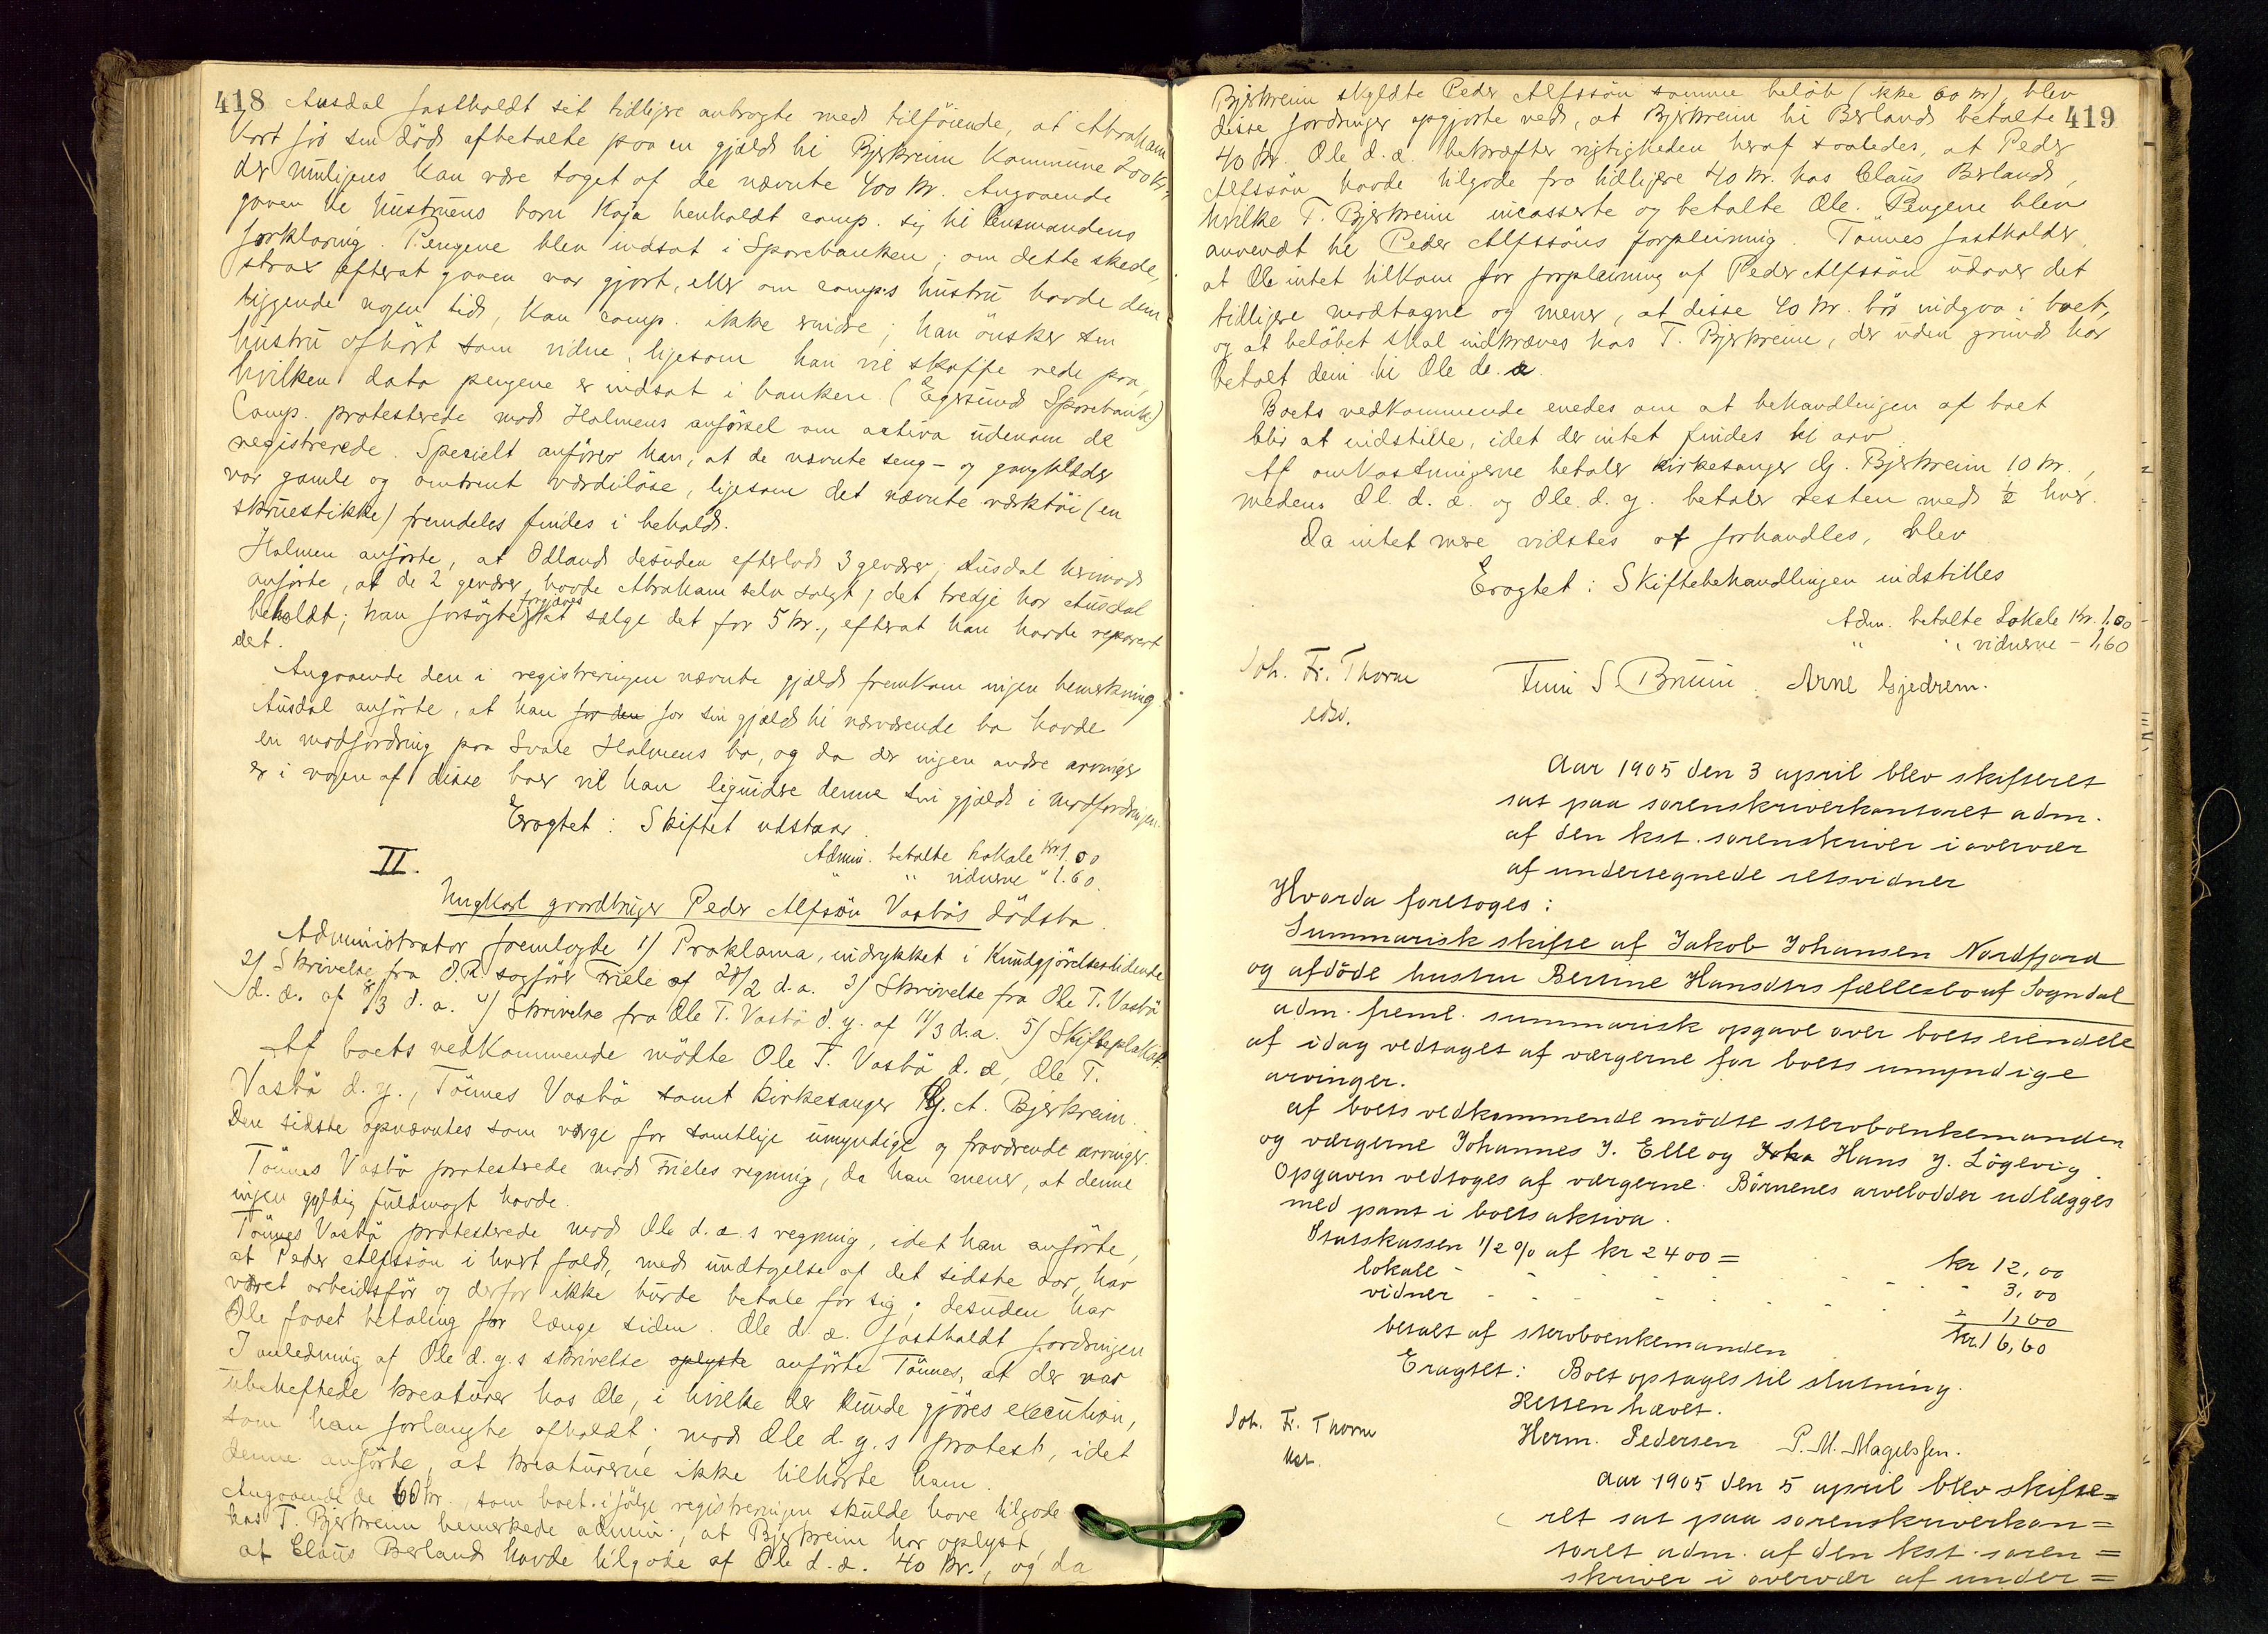 418
Ausdal fastholdt sit tidligere anbragte med tilföiende, at Abraham
kort för sin död afbetalte paa en gjæld til Bjerkreim Kommune 200 kr.,
der muligens kan være taget af de nævnte 400 kr. Angaaende
gaven til hustruens barn Kaja henholdt comp. sig til lensmandens
forklaring. Pengene blev indsat i Sparebanken; om dette skede,
strax efterat gaven var gjort, eller om comp.s hustru havde dem
liggende nogen tid, kan comp. ikke erindre; han önsker sin
hustru afhört som vidne, ligesom han vil skaffe rede paa,
hvilken data pengene er indsat i banken (Egersund Sparebank)
Comp. protesterede mod Holmens anförsel om activa udenom de
registrerede. Specielt anförer han, at de nævnte seng- og gangklæder
var gamle og omtrent værdilöse, ligesom det nævnte værktöi (en
skruestikke) fremdeles findes i behold.
Holmen anförte, at Ödland desuden efterlod 3 geværer; Ausdal herimod
anförte, at de 2 geværer havde Abraham selv solgt; det tredje har Ausdal
beholdt; han forsögte forgjæves at sælge det for 5 kr., efterat han havde reparert
det.
Angaaende den i registreringen nævnte gjæld fremkom ingen bemerkning.
Ausdal anförte, at han for den for sin gjæld til nærværende bo havde
en modfordring paa Svale Holmens bo, og da der ingen andre arvinger
er i nogen af disse boer vil han liquidere denne sin gjæld i modfordringen.
Eragtet: Skiftet udstaar.
Admin. betalte Lokale kr 1.00
" " vidnerne " 1.60.
II.
Ungkarl gaardbruger Peder Alfsön Vasbös dödsbo.
Administrator fremlagte 1) Proklama, indrykket i Kundgjörelsestidende
2) Skrivelse fra O.R. sagförer Friele af 28/2 d.a. 3) Skrivelse fra Ole T. Vasbö
d. æ. af 8/3 d. a. 4) Skrivelse fra Ole T. Vasbö d. y. af 11/3 d.a. 5) Skifteplakat.
Af boets vedkommende mödte Ole T. Vasbö d. æ, Ole T.
Vasbö d. y., Tönnes Vasbö samt kirkesanger Gj. A. Bjerkreim.
Den sidste opnævntes som værge for samtlige umyndige og fraværende arvinger.
Tönnes Vasbö protesterede mod Frieles regning, da han mener, at denne
ingen gyldig fuldmagt havde.
Tönnes Vasbö protesterede mod Ole d. æ.s regning, idet han anförte,
at Peder Alfssön i hvert fald, med undtagelse af det sidste aar, har
været arbeidsför og derfor ikke burde betale for sig; desuden har
Ole faaet betaling for længe siden. Ole d. æ. fastholdt fordringen
I anledning af Ole d. y.s skrivelse oplyste anförte Tönnes, at der var
ubeheftede kreaturer hos Ole, i hvilke der kunde gjöres execution,
som han forlangte afholdt; mod Ole d. y.s protest, idet
denne anförte, at kreaturerne ikke tilhörte ham.
Angaaende de 60 kr., som boet ifölge registreringen skulde have tilgode
hos T. Bjerkreim bemerkede admin., at Bjerkreim har oplyst,
at Claus Berland havde tilgode af Ole d. æ. 40 kr., og da
419
Bjerkreim skyldte Peder Alfssön samme belöb (ikke 60 kr), blev
disse fordringer opgjorte ved, at Bjerkreim til Berland betalte
40 kr. Ole d. æ. bekræfter rigtigheden heraf saaledes, at Peder
Alfssön havde tilgode fra tidligere 40 kr. hos Claus Berland,
hvilke T. Bjerkreim incasserte og betalte Ole. Pengene blev
anvendt til Peder Alfssöns forpleining. Tönnes fastholder,
at Ole intet tilkom for forpleining af Peder Alfssön udover det
tidligere modtagne og mener, at disse 40 kr. bör indgaa i boet,
og at belöbet skal indkræves hos T. Bjerkreim, der uden grund har
betalt dem til Ole d. æ.
Boets vedkommende enedes om at behandlingen af boet
blir at indstille, idet der intet findes til arv.
Af omkostningerne betaler kirkesanger Gj. Bjerkreim 10 kr.,
medens Ol. d. æ. og Ole. d. y. betaler resten med ½ hver.
Da intet mere vidstes at forhandles, blev
Eragtet: Skiftebehandlingen indstilles
Adm. betalte Lokale Kr. 1.00
" " vidnerne - 1,60
Joh. Fr. Thorne
edsv.
Timi S. Bruun. Arne Gjedrem.
Aar 1905 den 3 april blev skifteret
sat paa sorenskriverkontoret adm.
af den kst. sorenskriver i overvær
af undertegnede retsvidner
Hvorda foretoges:
Summarisk skifte af Jakob Johansen Nordfjord
og afdöde hustru Bertine Hansdtrs fællesbo af Sogndal
adm. freml. summarisk opgave over boets eiendele
af idag vedtaget af værgerne for boets umyndige
arvinger.
af boets vedkommende mödte sterboenkemanden
og værgerne Johannes J. Elle og Joha Hans J. Lögevig.
Opgaven vedtoges af værgerne. Börnenes arvelodder udlægges
med pant i boets aktiva.
Statskassen 1/2 % af kr 2400 = kr 12,00
lokale - - - - - - - - 3,00
vidner - - - - - - - " 1,60
betalt af sterboenkemanden kr 16,60
Eragtet: Boet optages til slutning.
Retten hævet.
Joh. Fr. Thorne
kst.
Herm. Pedersen P. M. Magelssen.
Aar 1905 den 5 april blev skifte=
ret sat paa sorenskriverkon=
toret adm. af den kst. soren=
skriver i overvær af under=